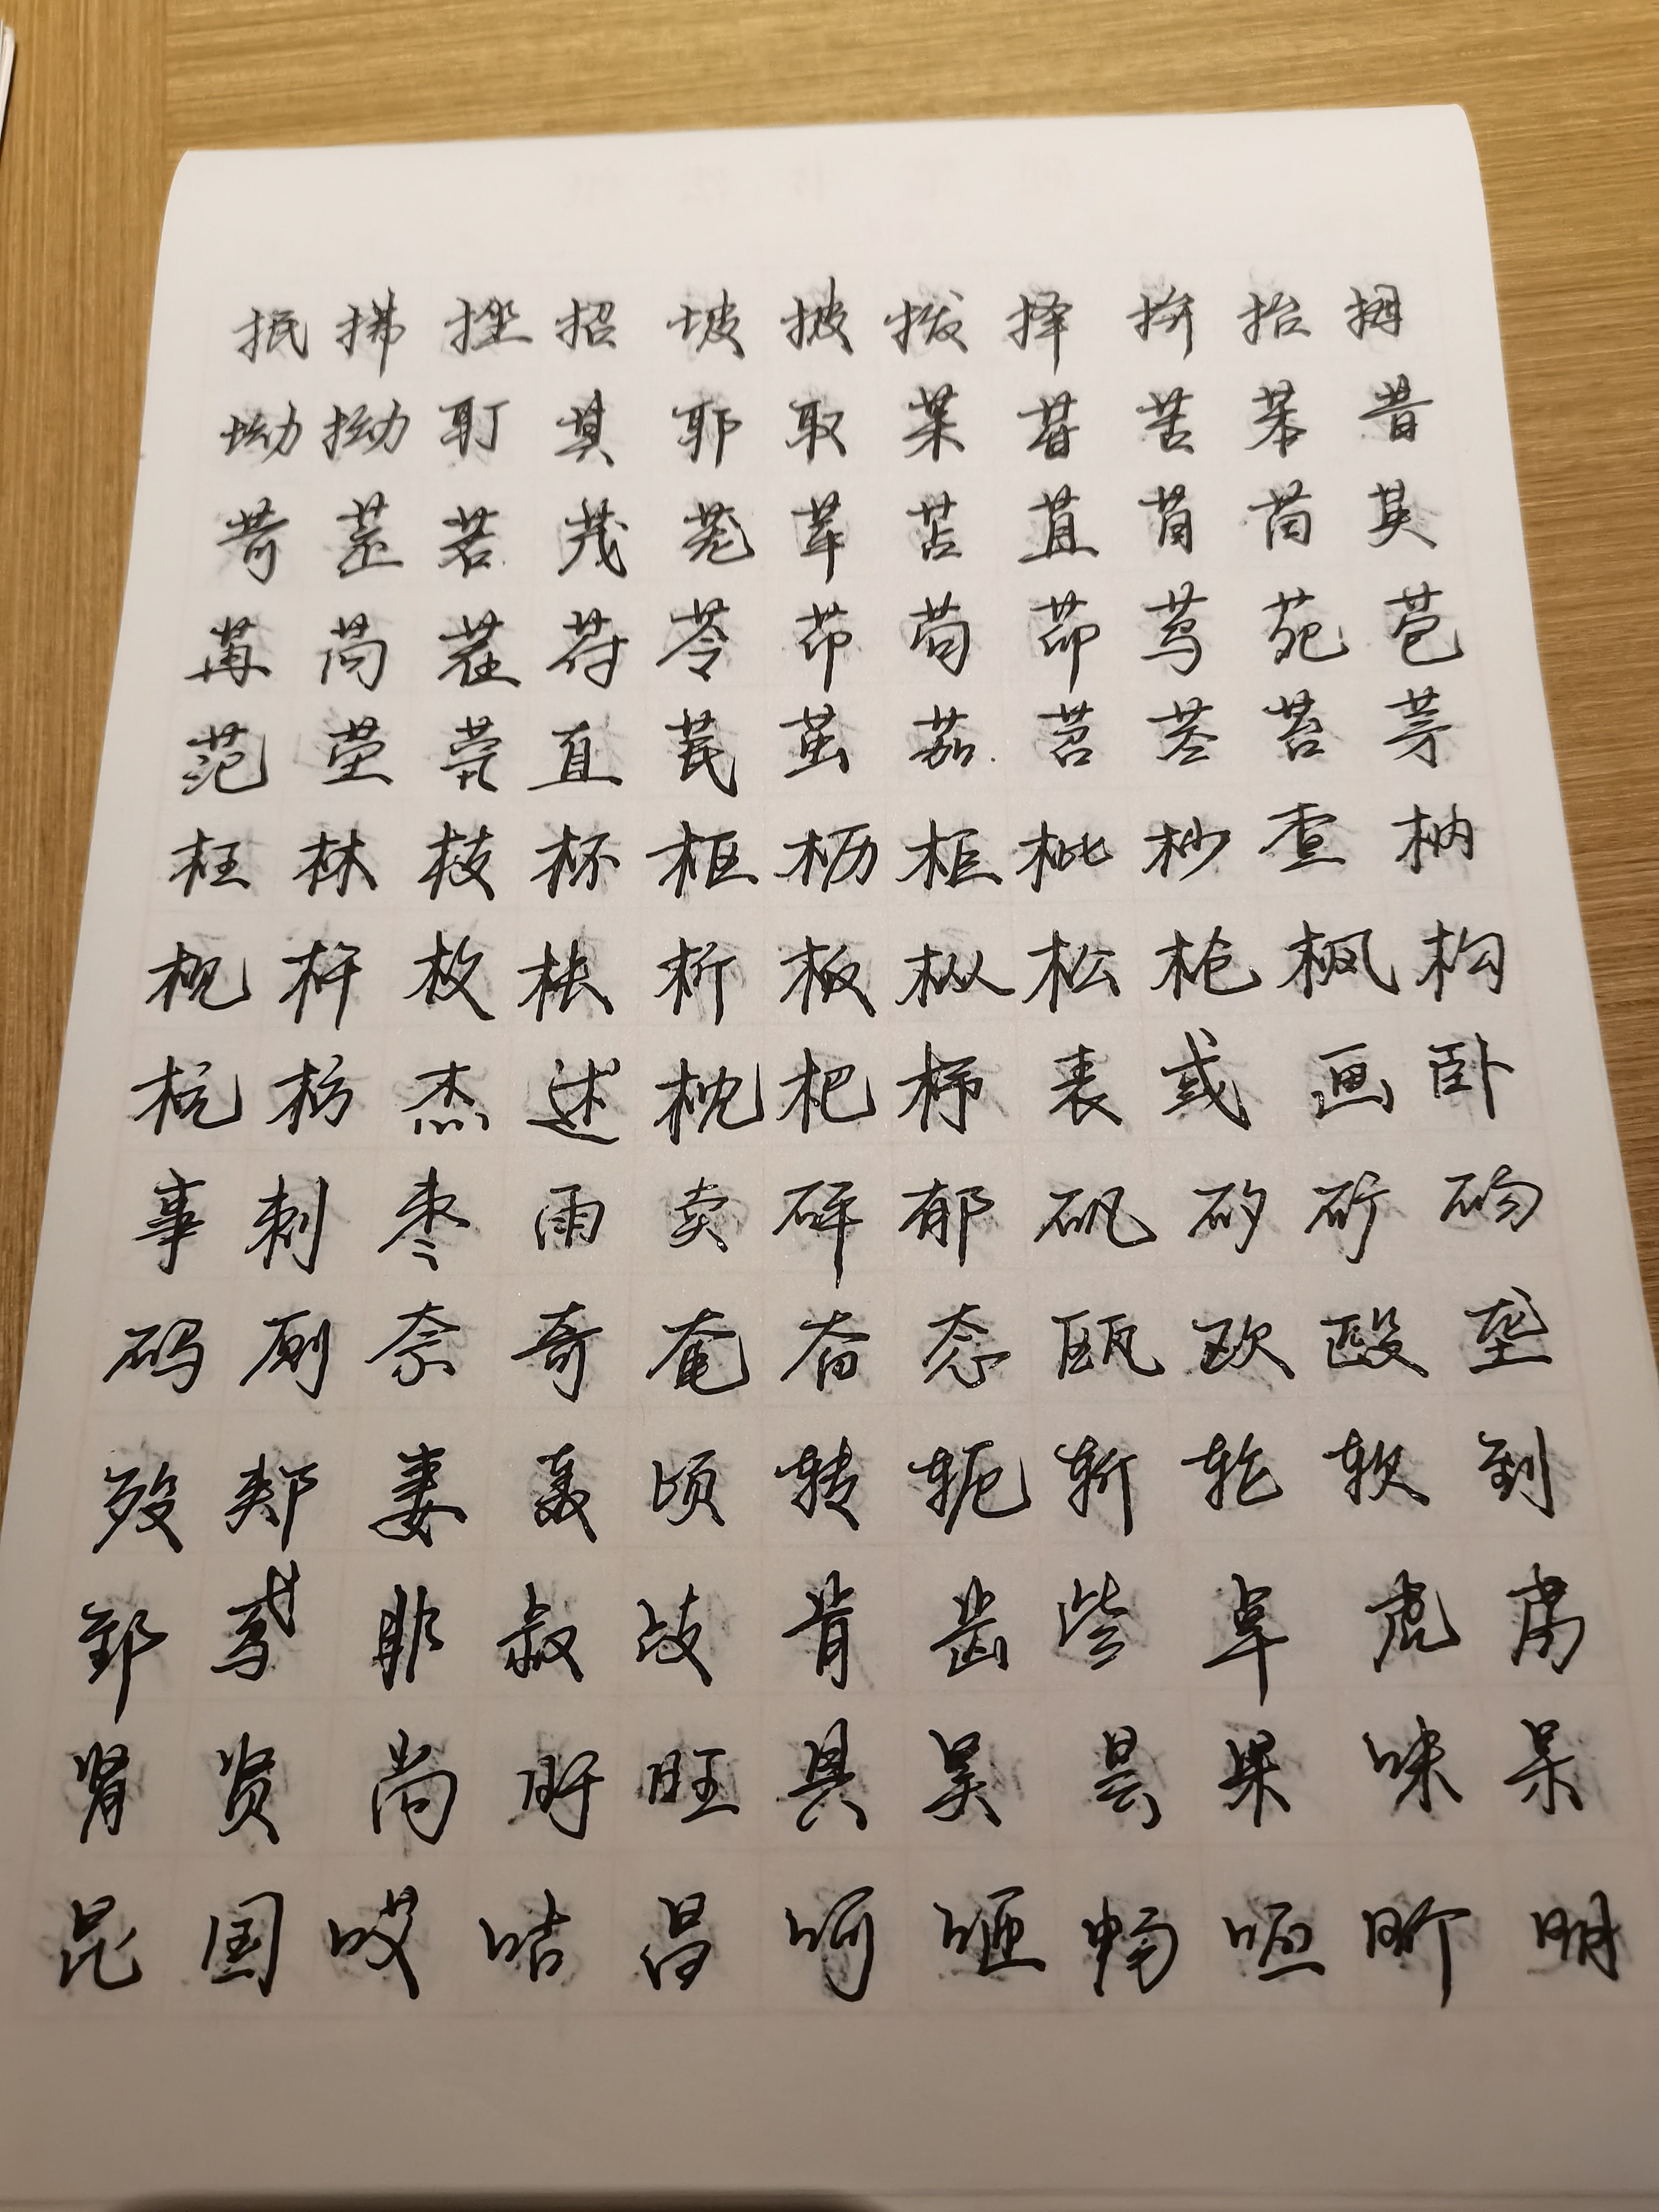 抿 拂 挫 招 坡 披 拨 择 拚 抬 拇
坳 拗 耵 其 耶 取 茉 苷 苦 苯 昔
苛 苤 若 茂 茏 苹 苫 苴 苜 苗 英
苒 苘 茬 苻 苓 茚 苟 茆 茑 苑 苞
范 茔 茕 直 苠 茁 茄 苕 茎 苔 茅
枉 林 枝 杯 枢 枥 柜 枇 杪 杳 枘
枧 杵 枚 枨 析 板 枞 松 枪 枫 构
杭 枋 杰 述 枕 杷 杼 丧 或 画 卧
事 刺 枣 雨 卖 矸 郁 矾 矽 矿 砀
码 厕 奈 奇 奄 奋 态 瓯 欧 殴 垄
殁 郏 妻 轰 顷 转 轭 斩 轮 软 到
郅 鸢 非 叔 歧 肯 齿 些 卓 虎 虏
肾 贤 尚 盱 旺 具 昊 昙 果 味 杲
昆 国 哎 咕 昌 呵 咂 畅 呸 昕 明